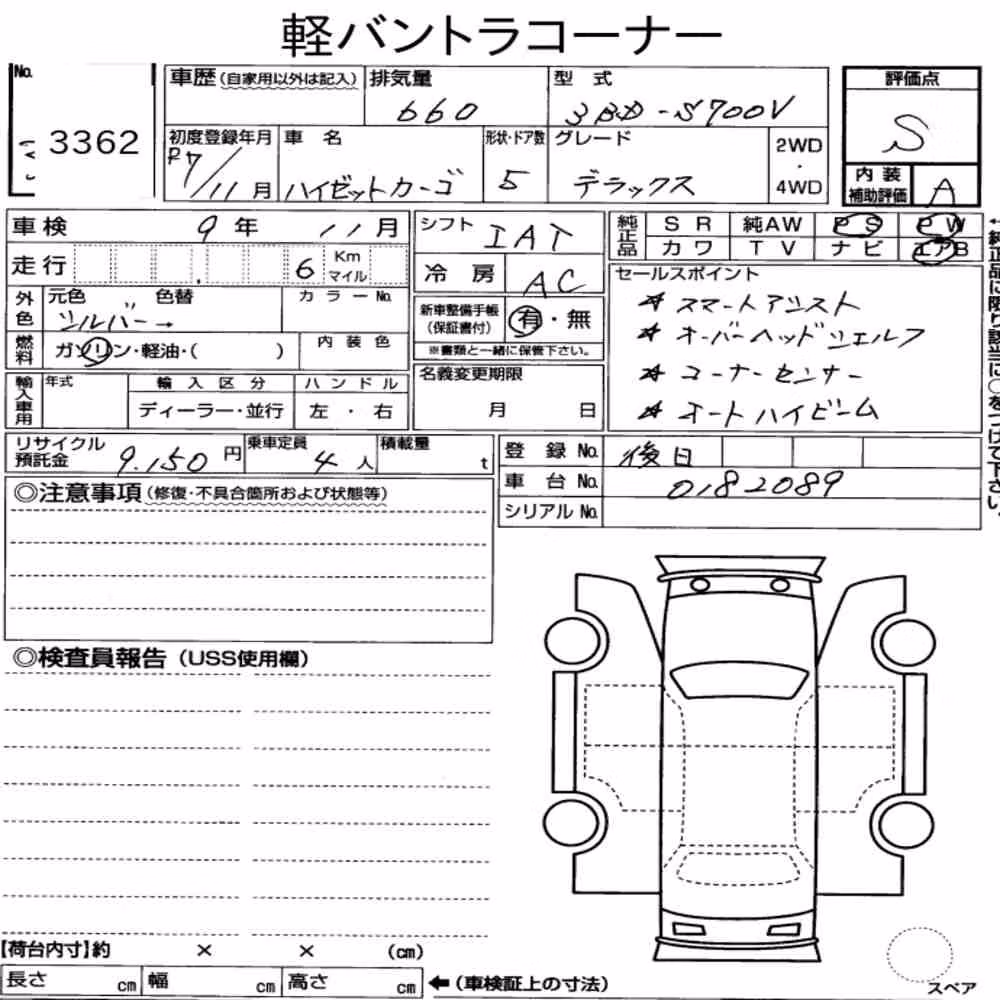 軽バントラコーナー
No.
3362
車歴(自家用以外は記入) 排気量 型式 評価点
660 3BD-S700V S
初度登録年月 車名 形状・ドア数 グレード 2WD・4WD
R7/11月 ハイゼットカーゴ 5 デラックス
内装補助評価 A
車検 9年 11月 シフト IAT
純正品 SR 純AW PS PW
カワ TV ナビ エアB
走行 6 Km マイル 冷房 AC
外色 元色 色替 カラーNo.
シルバー→
新車整備手帳(保証書付) 有・無
※書類と一緒に保管下さい。
セールスポイント
★スマートアシスト
★オーバーヘッドシェルフ
★コーナーセンサー
★オートハイビーム
燃料 ガソリン・軽油・( ) 内装色
輸入車用 年式 輸入区分 ハンドル
ディーラー・並行 左・右
名義変更期限
月 日
←純正品に限り該当に○をつけて下さい。
リサイクル預託金 9.150円 乗車定員 4人 積載量 t
登録No. 後日
車台No. 0182089
シリアルNo.
◎注意事項(修復・不具合箇所および状態等)
◎検査員報告(USS使用欄)
【荷台内寸】約 × × (cm)
長さ cm 幅 cm 高さ cm ←(車検証上の寸法)
スペア